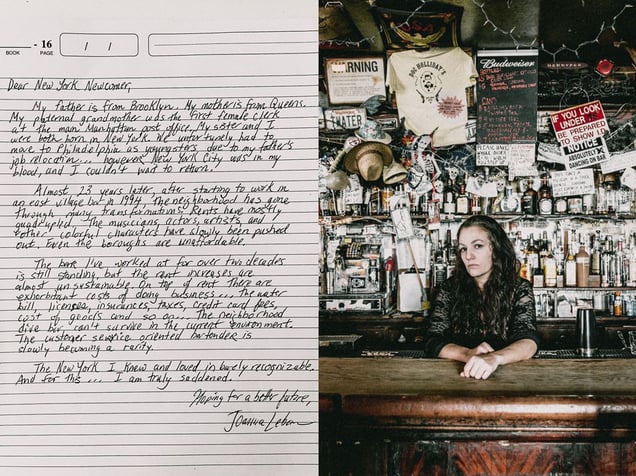 - 16
BOOK PAGE / /
Dear New York Newcomer,
My father is from Brooklyn. My mother is from Queens.
My paternal grandmother was the first female clerk
at the main Manhattan post office. My sister and I
were both born in New York. We unfortunately had to
move to Philadelphia as youngsters due to my father's
job relocation... however, New York City was in my
blood, and I couldn't wait to return.
Almost 23 years later, after starting to work in
an east village bar in 1994, the neighborhood has gone
through many transformations. Rents have mostly
quadrupled. The musicians, actors, artists, and
other colorful characters have slowly been pushed
out. Even the boroughs are unaffordable.
The bar I've worked at for over two decades
is still standing, but the rent increases are
almost unsustainable. On top of rent there are
exhorbitant costs of doing business... The water
bill, licenses, insurances, taxes, credit card fees,
cost of goods and so on... The neighborhood
dive bar can't survive in the current environment.
The customer service oriented bartender is
slowly becoming a rarity.
The New York I knew and loved is barely recognizable.
And for this... I am truly saddened.
Hoping for a better future,
WARNING
DOC HOLLIDAY'S
Budweiser
THEATER
IF YOU LOOK
UNDER
BE PREPARED
TO SHOW I.D.
NOTICE
ABSOLUTELY
DANCING ON BAR